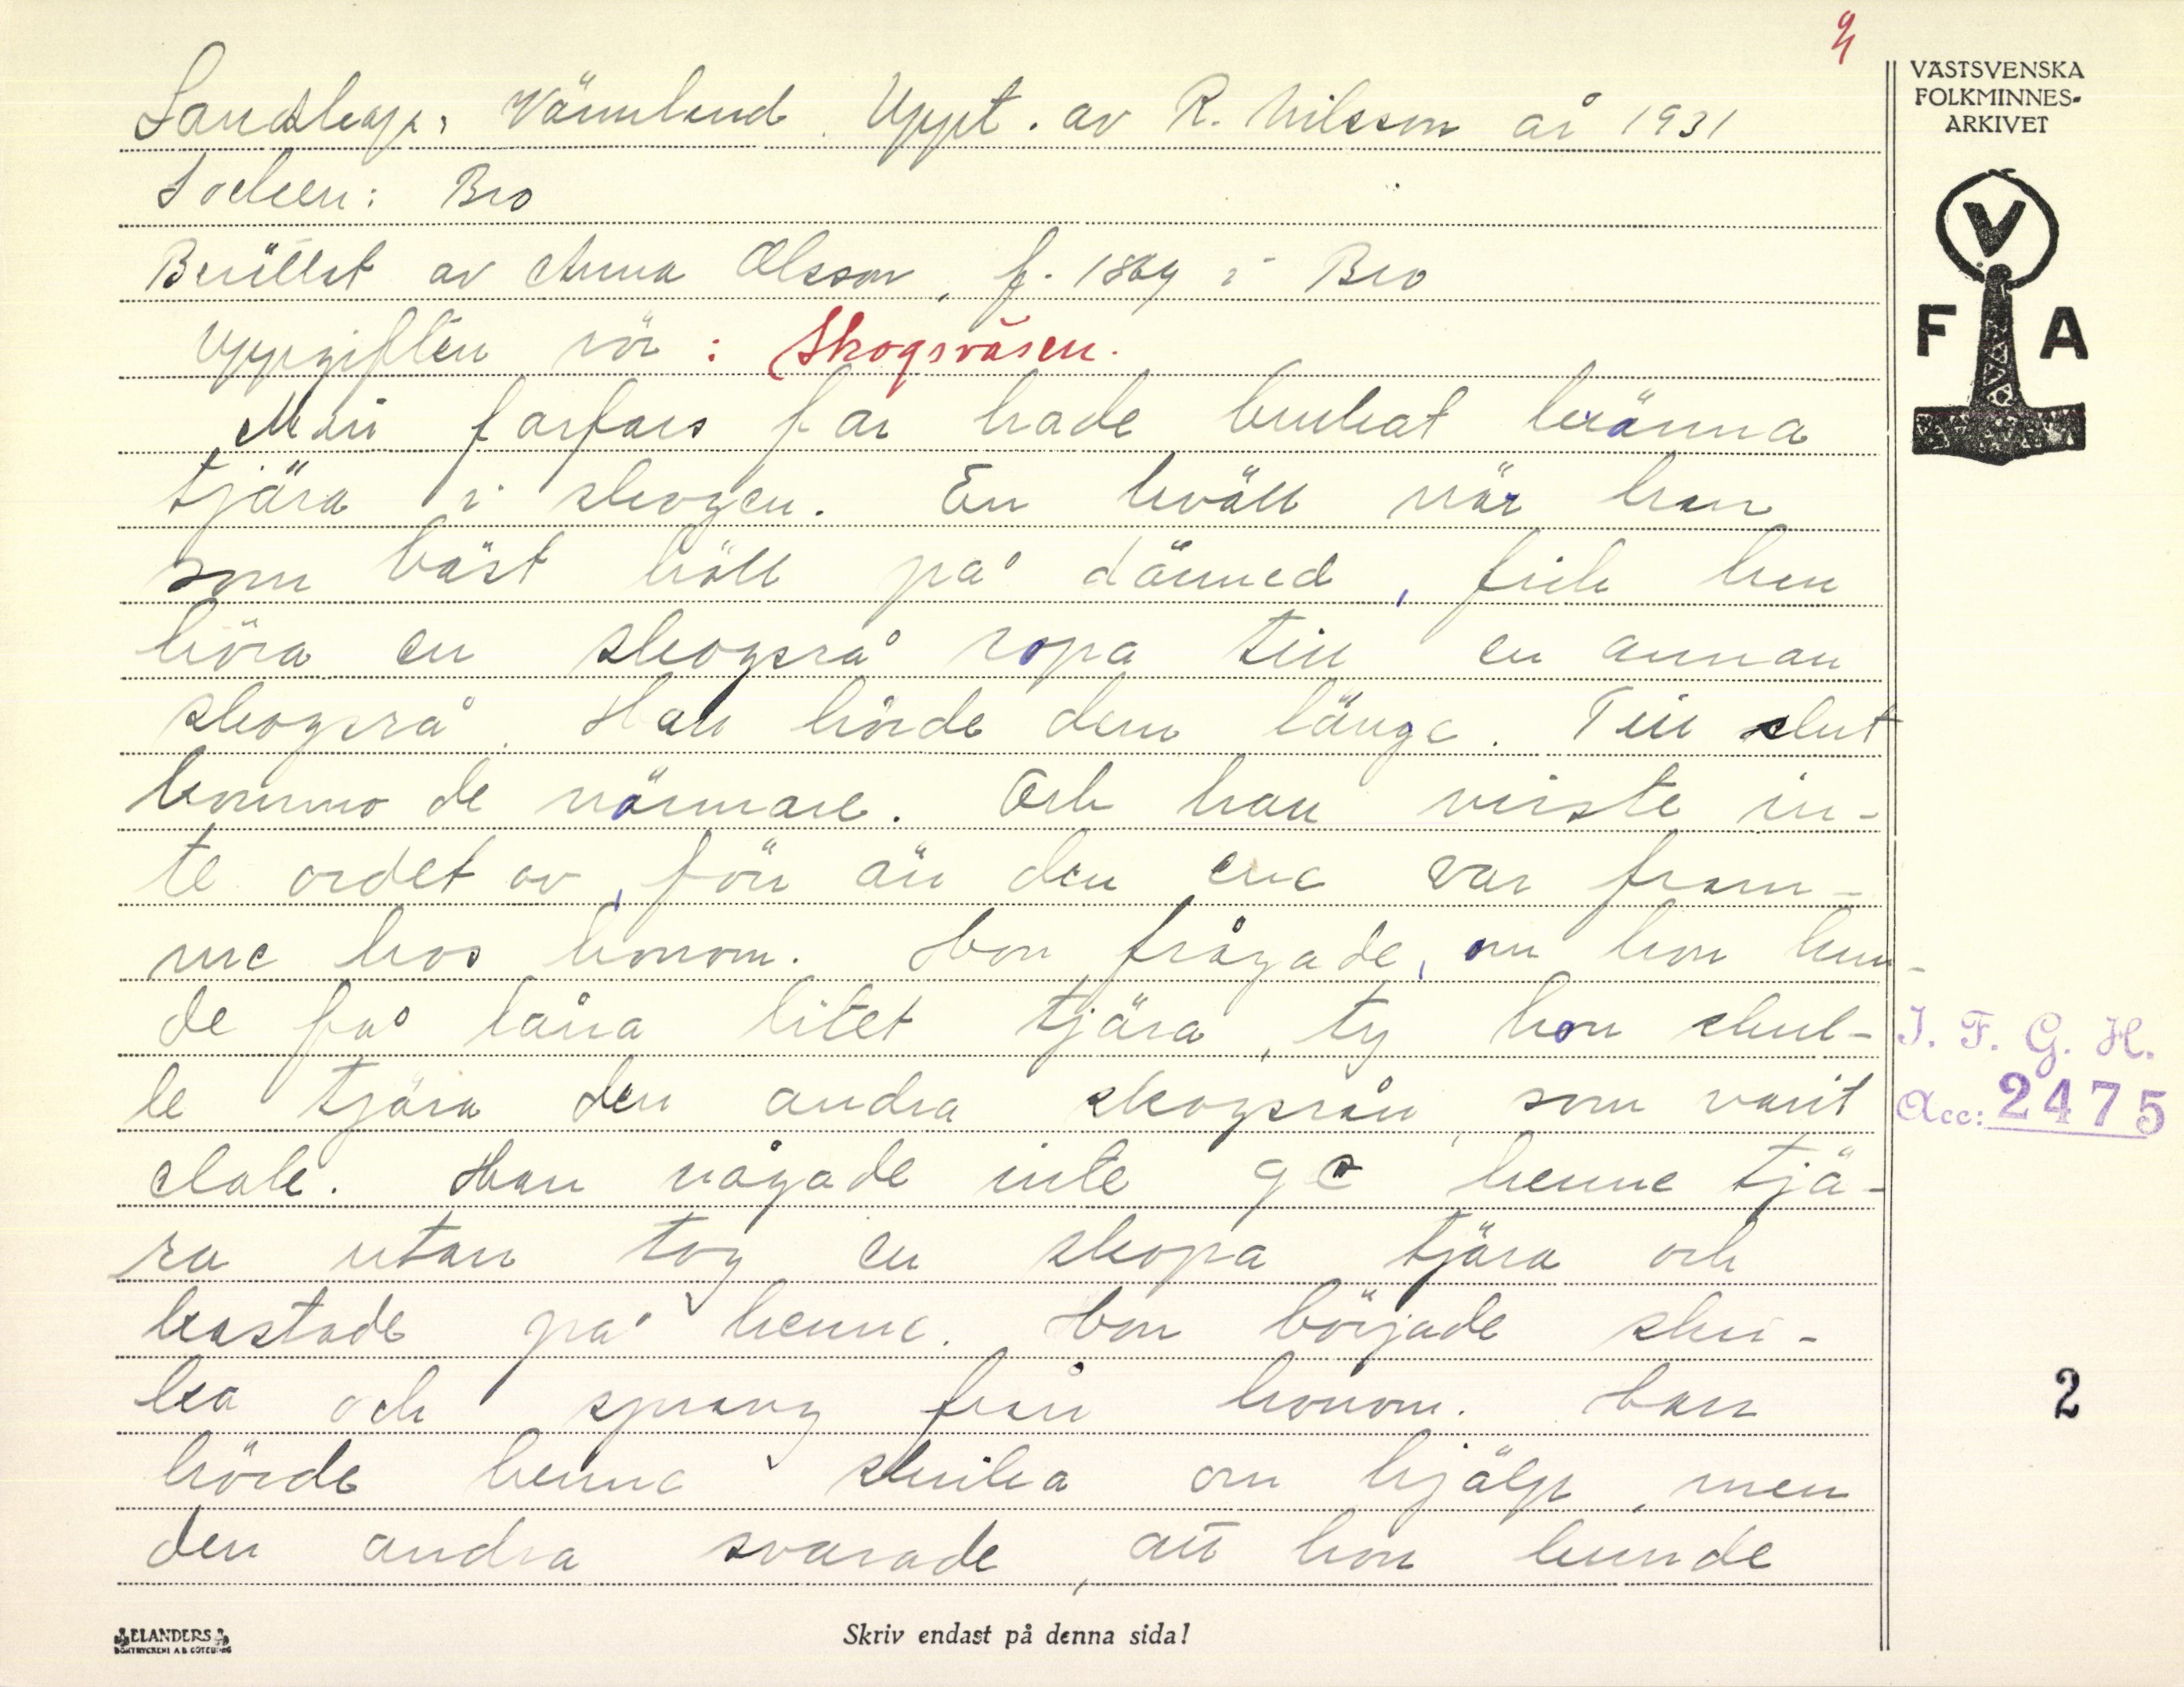 Landskap: Värmland. Uppt. av R. Nilsson år 1931
Socken: Bro
Berättat av Anna Olsson, f. 1864 i Bro
Uppgiften rör: Skogsväsen.
Min farfars far hade brukat bränna
tjära i skogen. En kväll när han
som bäst höll på därmed, fick han
höra en skogsrå ropa till en annan
skogsrå. Han hörde dem länge. Till slut
kommo de närmare. Och han visste in-
te ordet av, förr än den ena var fram-
me hos honom. Hon frågade, om hon kun-
de få låna litet tjära, ty hon skul-
le tjära den andra skogsrån, som varit
elak. Han vågade inte ge henne tjä-
ra utan tog en skopa tjära och
kastade på henne. Hon började skri-
ka och sprang från honom. Han
hörde henne skrika om hjälp, men
den andra svarade, att hon kunde
Skriv endast på denna sida!
ELANDERS
BOKTRYCKERI A.B. GÖTEBORG
VÄSTSVENSKA
FOLKMINNES-
ARKIVET
V
F A
I. F. G. H.
Acc: 2475
2